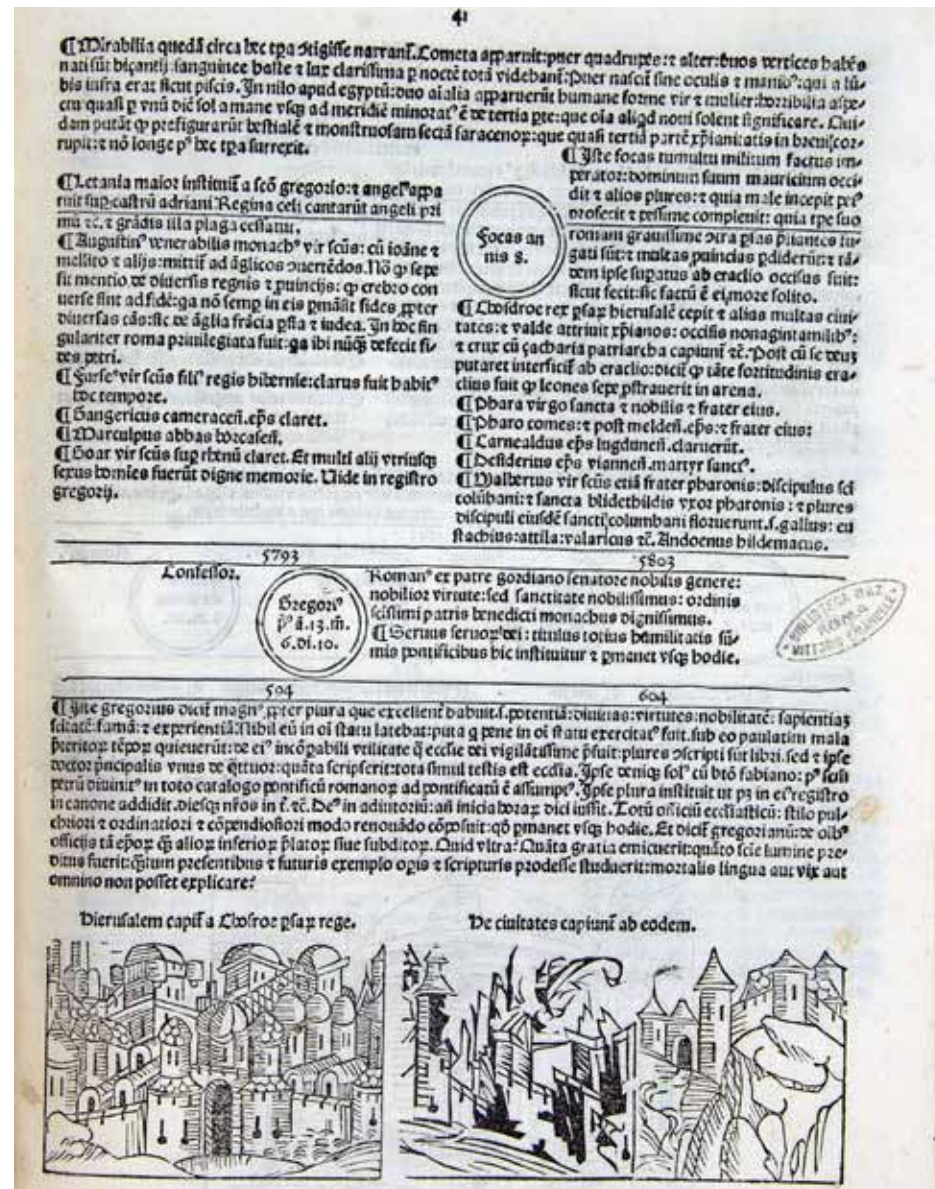 41
¶ Mirabilia quedā circa hec tꝑa ↄtigisse narrant᷑. Cometa apparuit: puer quadrupes: ⁊ alter: duos vertices habēs
nati sūt biçantij: sanguinee haste ⁊ lux clarissima ꝑ noctē totā videbant᷑: Puer nascit᷑ sine oculis ⁊ manibꝰ: qui a lū-
bis infra erat sicut piscis. In nilo apud egyptū: duo aīalia apparuerūt humane forme vir ⁊ mulier: horribilia aspe-
ctu: quasi ꝑ vnū diē sol a mane vsqꝫ ad meridiē minoratꝰ ē de tertia ꝑte: que oīa aliqd noui solent significare. Qui-
dam putāt ꝙ prefigurarūt bestialē ⁊ monstruosam sectā saracenoꝝ: que quasi tertiā partē xp̄iani: atis in breui: cor-
rupit: ⁊ nō longe pꝰ hec tꝑa surrexit.
¶ Letania maior instituit᷑ a scō gregorio: ⁊ angelꝰ appa
ruit suꝑ castrū adriani. Regina celi cantarūt angeli pri
mū ⁊c. ⁊ grādis illa plaga cessatur.
¶ Augustinꝰ venerabilis monachꝰ vir scūs: cū ioāne ⁊
mellito ⁊ alijs: mittit᷑ ad āglicos ↄuertēdos. Nō ꝙ sepe
fit mentio de diuersis regnis ⁊ ꝓuincijs: ꝙ crebro con
uerse sint ad fidē: ga nō semꝑ in eis ꝑmāsit fides ꝓpter
diuersas cās: sic de āglia frācia ꝑsia ⁊ iudea. In hoc sin
gulariter roma priuilegiata fuit: ga ibi nūqꝫ defecit fi-
des petri.
¶ Furseꝰ vir scūs filiꝰ regis hibernie: clarus fuit habitꝰ
hoc tempore.
¶ Gangericus cameraceñ. ep̄s claret.
¶ Marculpus abbas
¶ Goar vir scūs suꝑ rhenū claret. Et multi alij vtriusqꝫ
sexus homīes fuerūt digne memorie. Uide in registro
gregorij.
Focas an
nis 8.
¶ Iste focas tumultu militum factus im-
perator: dominum suum mauricium occi-
dit ⁊ alios plures: ⁊ quia male incepit peiꝰ
ꝓfecit ⁊ pessime compleuit: quia tꝑe suo
romani grauissime ↄtra ꝑsas pugnantes fu-
gati sūt: ⁊ multas ꝓuincias ꝑdiderūt: ⁊ tā-
dem ipse suꝑatus ab eraclio occisus fuit:
sicut fecit: sic factū ē ei, more solito.
¶ Chosdroe rex ꝑsaꝝ hierusalē cepit ⁊ alias multas ciui-
tates: ⁊ valde attriuit xp̄ianos: occisis nonagintamilibꝰ:
⁊ crux cū çacharia patriarcha capiunt᷑ ⁊c. Post cū se deuꝫ
putaret interficit᷑ ab eraclio: dicit᷑ ꝙ tāte fortitudinis era-
clius fuit ꝙ leones sepe ꝓstrauerit in arena.
¶ Phara virgo sancta ⁊ nobilis ⁊ frater eius.
¶ Pharo comes: ⁊ post meldeñ. ep̄s: ⁊ frater eius:
¶ Carnealdus ep̄s lugduneñ. claruerūt.
¶ Desiderius ep̄s vianneñ. martyr sanctꝰ.
¶ Walbertus vir scūs etiā frater pharonis: discipulus scī
colūbani: ⁊ sancta blidethildis vxor pharonis: ⁊ plures
discipuli eiusdē sancti columbani floruerunt. s. gallus: eu
stachius: attila: valaricus ⁊c. Andoenus hildemacus.
5793 5803
Confessor.
Gregoriꝰ
pꝰ ā. 13. m̄.
6. di. 10.
Romanꝰ ex patre gordiano senatore nobilis genere:
nobilior virtute: sed sanctitate nobilissimus: ordinis
scissimi patris benedicti monachus dignissimus.
¶ Seruus seruoꝝ dei: titulus totius hūmilitatis sū-
mis pontificibus hic instituitur ⁊ ꝑmanet vsqꝫ hodie.
BIBLIOTECA NAZ
ROMA
VITTORIO EMANUELE
594 604
¶ Iste gregorius dicit᷑ magnꝰ ꝓpter plura que excellent᷑ habuit. s. potentiā: diuitias: virtutes: nobilitatē: sapientiaꝫ
scītatē: famā: ⁊ experientiā. Nihil eū in oī statu latebat: puta q̄ pene in oī statu exercitatꝰ fuit. sub eo paulatim mala
p̄teritoꝝ tēpoꝝ quieuerūt: de eiꝰ incōpabili vtilitate q̄ ecclīe dei vigilātissime p̄fuit: plures ↄscripti sūt libri. sed ⁊ ipse
doctor p̄ncipalis vnus de q̄ttuor: quāta scripserit: tota simul testis est ecclīa. Ipse deniqꝫ solꝰ cū btō fabiano: pꝰ
petrū diuinitꝰ in toto catalogo pontificū romanoꝝ ad pontificatū ē assumpꝰ. Ipse plura instituit ut pꝫ in eiꝰ registro
in canone addidit. diesqꝫ nr̄os in ⁊c. Deꝰ in adiutoriū: añ inicia horaꝝ dici iussit. Totū officiū ecclīasticū: stilo pul-
chriori ⁊ ordinatiori ⁊ cōpendiosiori modo renouādo cōposuit: qd̄ ꝑmanet vsqꝫ hodie. Et dicit᷑ gregorianū: de oībꝰ
officijs tā ep̄oꝝ q̄ꝫ alioꝝ inferioꝝ p̄latoꝝ siue subditoꝝ. Quid vltra? Quāta gratia emicuerit: quāto scīe lumine pre-
ditus fuerit: q̄ꝫtum presentibus ⁊ futuris exemplo oꝑis ⁊ scripturis prodesse studuerit: mortalis lingua aut vix aut
omnino non posset explicare?
Hierusalem capit᷑ a Chosroe ꝑsaꝝ rege.
De ciuitates capiunt᷑ ab eodem.